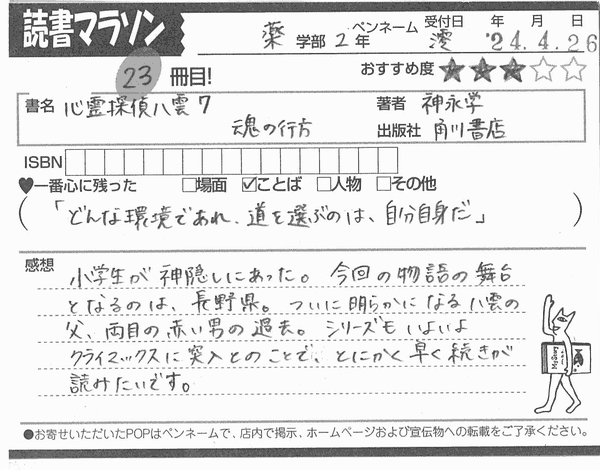 読書マラソン
薬 学部 2 年 ペンネーム 澪 受付日 '24年.4月.26日
23 冊目!
おすすめ度 ★★★☆☆
書名 心霊探偵八雲7
魂の行方
著者 神永学
出版社 角川書店
ISBN
♥一番心に残った □場面 ☑ことば □人物 □その他
(「どんな環境であれ、道を選ぶのは、自分自身だ」)
感想
小学生が神隠しにあった。今回の物語の舞台
となるのは、長野県。ついに明らかになる八雲の
父、両目の赤い男の過去。シリーズもいよいよ
クライマックスに突入とのことで、とにかく早く続きが
読みたいです。
●お寄せいただいたPOPはペンネームで、店内で掲示、ホームページおよび宣伝物への転載をご了承ください。